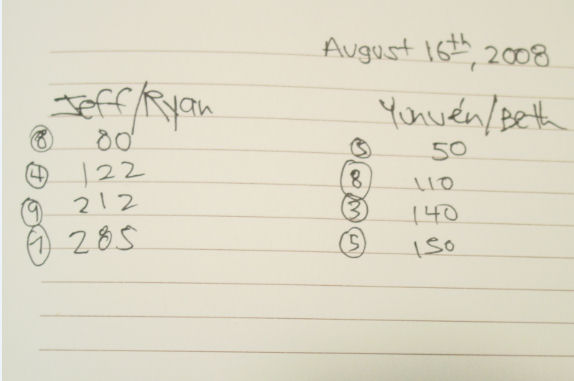 August 16th, 2008
Jeff/Ryan
8 80
4 122
9 212
7 285
Yunuén/Beth
50
8 110
3 140
5 150